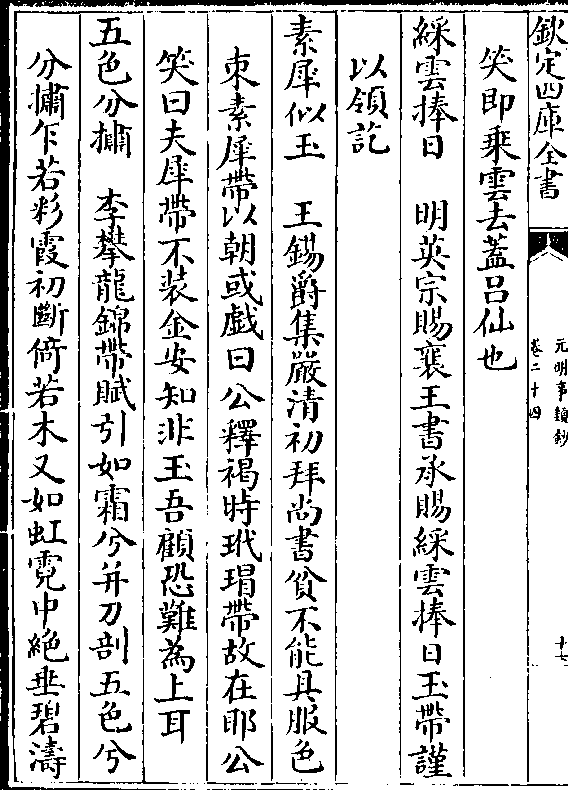 欽定四庫全書
元明事類鈔
卷二十四
十七
笑即乗雲去蓋吕仙也
綵雲捧日　明英宗賜襄王書承賜綵雲捧日玉帶謹
以領訖
素犀似玉　王錫爵集嚴清初拜尚書貧不能具服色
束素犀帶以朝或戯曰公釋褐時玳瑁帶故在耶公
笑曰夫犀帶不装金安知非玉吾顧恐難為上耳
五色分㩋　李攀龍錦帶賦引如霜兮并刀剖五色兮
分㩋乍若彩霞初斷倚若木又如虹霓中絶垂碧濤